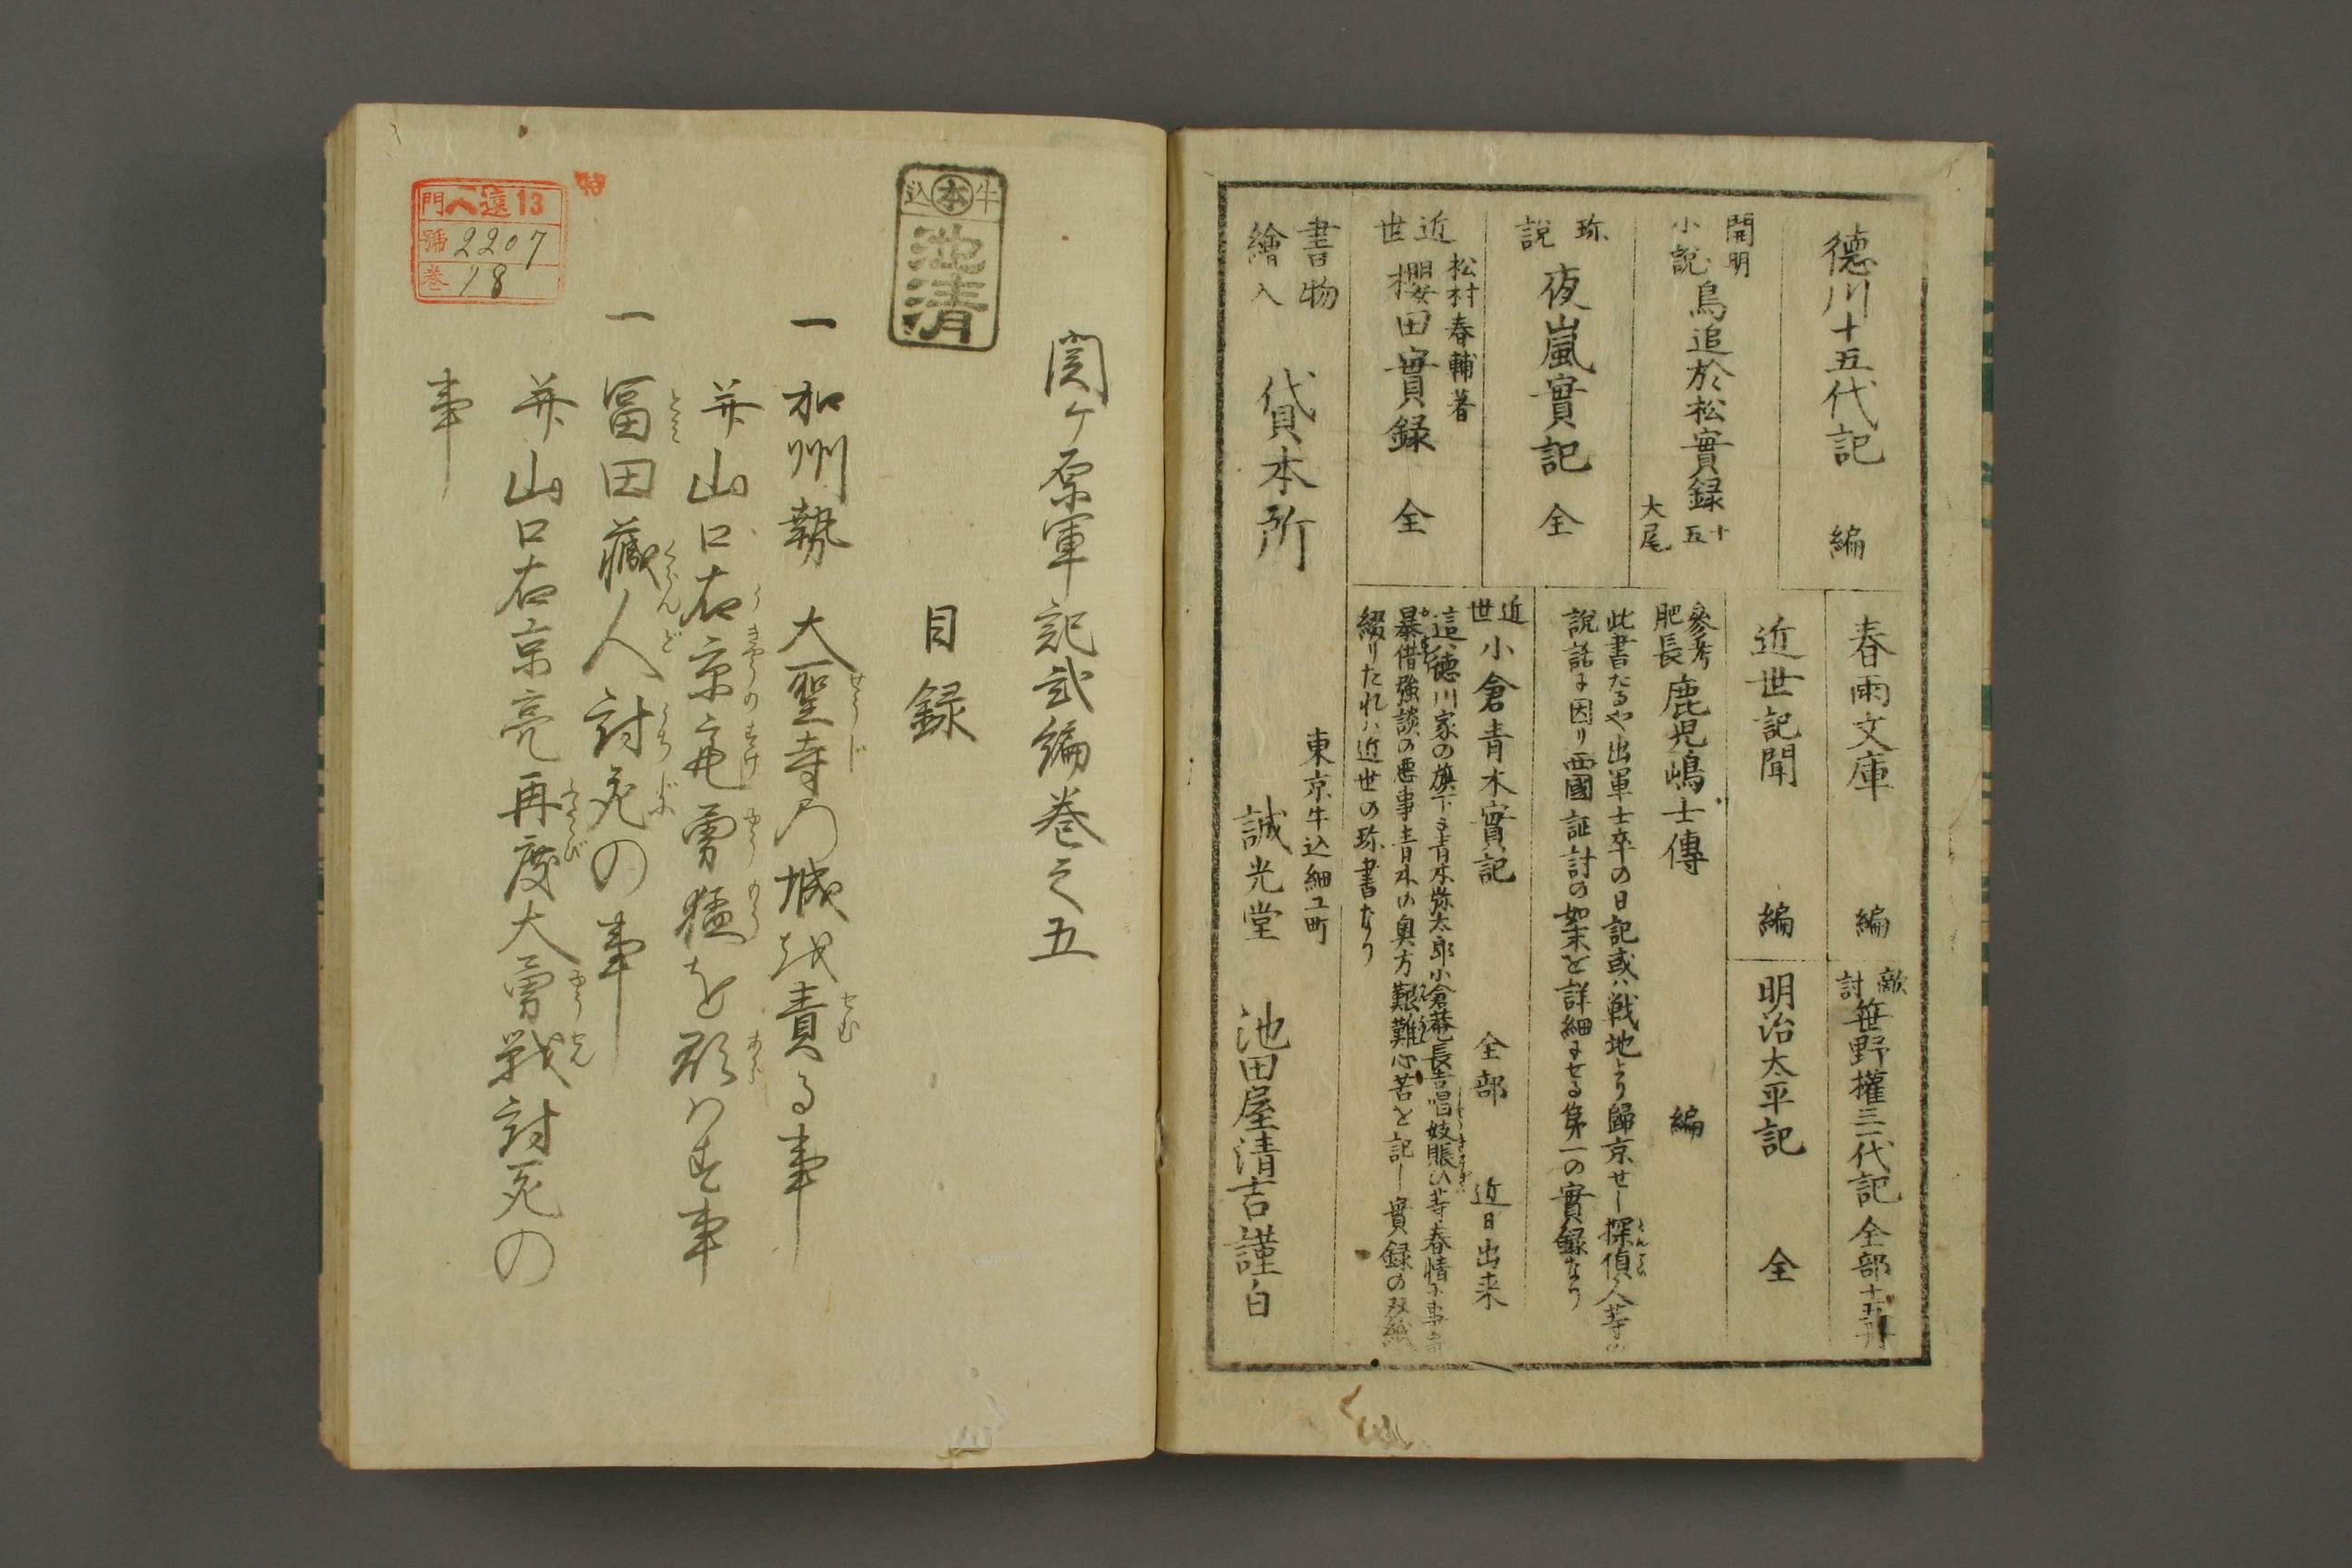 徳川十五代記　編
春雨文庫　編
敵討　笹野權三一代記　全部十五册
開明小説　鳥追於松實録　十五大尾
近世記聞　編
明治太平記　全
珎説　夜嵐實記　全
參考肥長　鹿児嶋士傳　編
此書たるや出軍士卒の日記或ハ戦地より歸京せし探偵人等の
説話に因り西國証討の始末を詳細にせる第一の實録なり
松村春輔著
近世　櫻田實録　全
近世　小倉青木實記　全部　近日出来
這ハ徳川家の旗下に青木弥太郎小倉菴長吉唱妓賑ひ等春情
暴借強談の悪事青木の奥方艱難心苦を記し實録の双紙
綴りたれハ近世の珎書なり
書物繪入　貸本所
東京牛込細工町
誠光堂　池田屋清吉謹白
関ヶ原軍記弐編巻之五
牛本込
池清
目録
一　加州勢大聖寺乃城を責る事
せうじ　せむ
并山口右京亮勇猛を顕ハす事
うきやうのすけ　ゆうもう　あら
一　冨田藏人討死の事
とみ　くらんど　うちじに
并山口右京亮再度大勇戦討死の
ふたゝび　ゆうせん
事
門 へ遠13
號 2207
巻 18